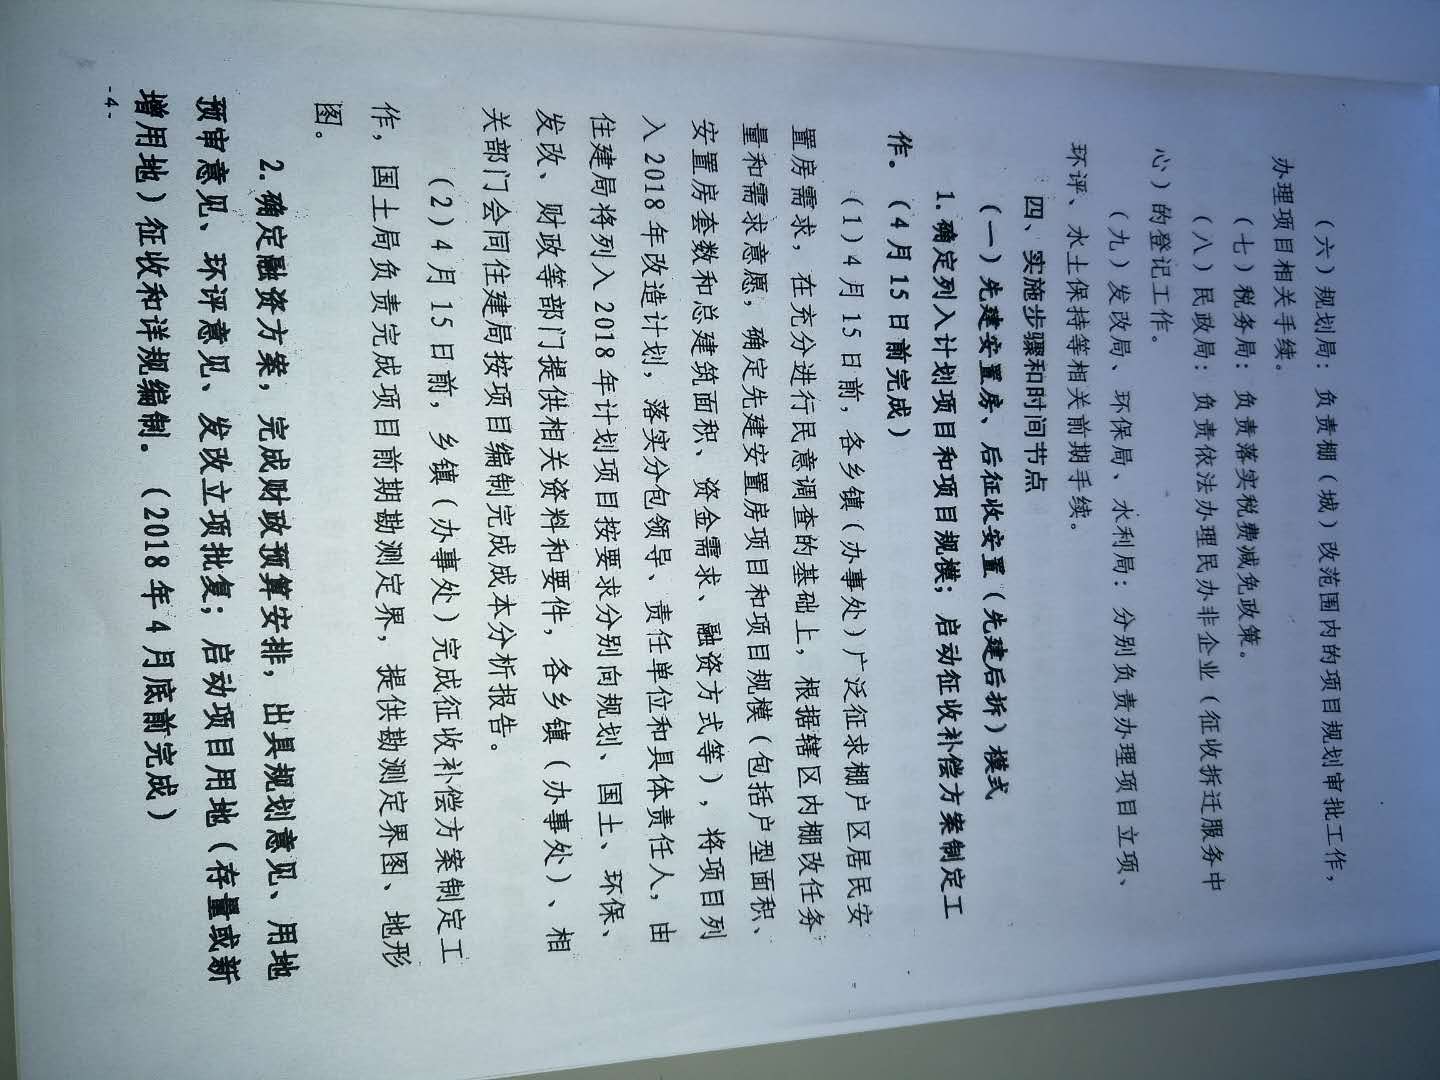 （六）规划局：负责棚（城）改范围内的项目规划审批工作，
办理项目相关手续。
（七）税务局：负责落实税费减免政策。
（八）民政局：负责依法办理民办非企业（征收拆迁服务中
心）的登记工作。
（九）发改局、环保局、水利局：分别负责办理项目立项、
环评、水土保持等相关前期手续。
四、实施步骤和时间节点
（一）先建安置房、后征收安置（先建后拆）模式
1.确定列入计划项目和项目规模；启动征收补偿方案制定工
作。（4月15日前完成）
（1）4月15日前，各乡镇（办事处）广泛征求棚户区居民安
置房需求，在充分进行民意调查的基础上，根据辖区内棚改任务
量和需求意愿，确定先建安置房项目和项目规模（包括户型面积、
安置房套数和总建筑面积、资金需求、融资方式等），将项目列
入2018年改造计划，落实分包领导、责任单位和具体责任人，由
住建局将列入2018年计划项目按要求分别向规划、国土、环保、
发改、财政等部门提供相关资料和要件，各乡镇（办事处）、相
关部门会同住建局按项目编制完成成本分析报告。
（2）4月15日前，乡镇（办事处）完成征收补偿方案制定工
作，国土局负责完成项目前期勘测定界，提供勘测定界图、地形
图。
2.确定融资方案，完成财政预算安排，出具规划意见、用地
预审意见、环评意见、发改立项批复；启动项目用地（存量或新
增用地）征收和详规编制。（2018年4月底前完成）
-4-